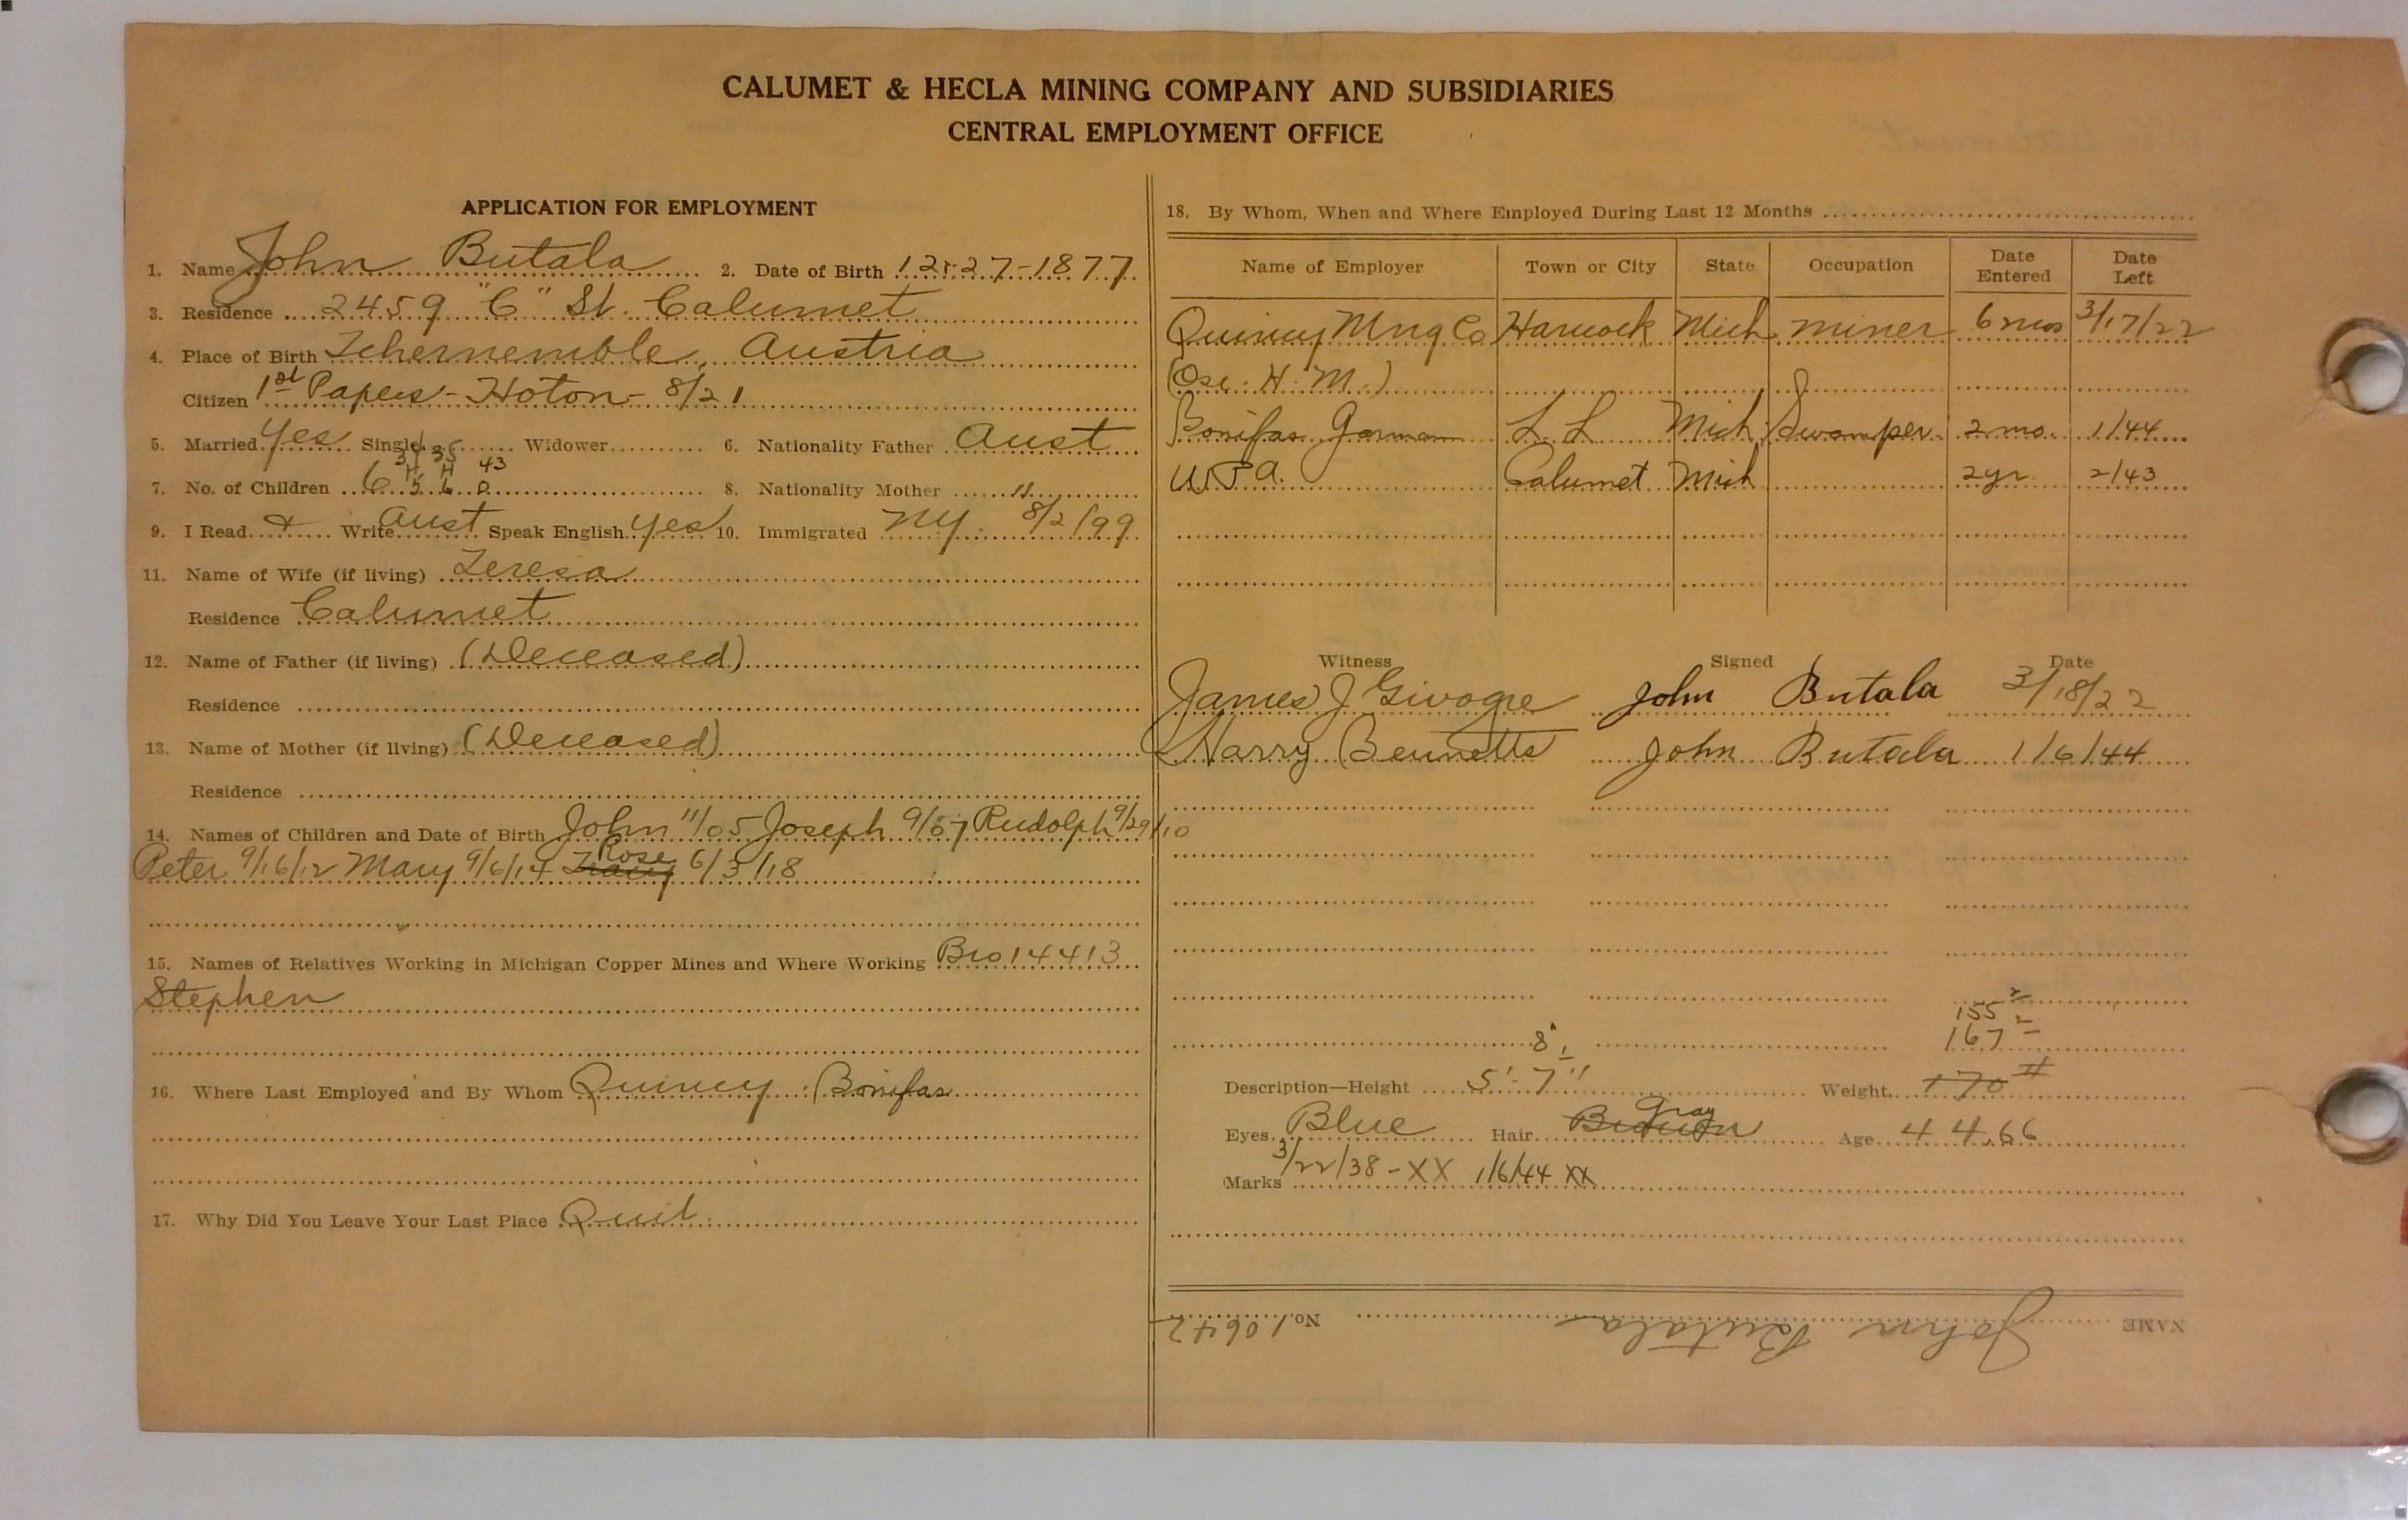 CALUMET & HECLA MINING COMPANY AND SUBSIDIARIES
CENTRAL EMPLOYMENT OFFICE
APPLICATION FOR EMPLOYMENT
1. Name John Butala 2. Date of Birth 12-27-1877
3. Residence 2459 "C" St. Calumet
4. Place of Birth Tchernemble, Austria
Citizen 1st Papers - Hoton - 8/21
5. Married yes Single Widower 6. Nationality Father Aust
34 35 43
7. No. of Children 6 5 6 0 8. Nationality Mother "
9. I Read & Write Aust Speak English yes 10. Immigrated NY. 8/2/99
11. Name of Wife (if living) Teresa
Residence Calumet
12. Name of Father (if living) (Deceased)
Residence
13. Name of Mother (if living) (Deceased)
Residence
14. Names of Children and Date of Birth John 11/05 Joseph 9/07 Rudolph 9/29/10
Peter 9/16/12 Mary 9/6/14 Tracy Rose 6/3/18
15. Names of Relatives Working in Michigan Copper Mines and Where Working Bro 14413
Stephen
16. Where Last Employed and By Whom Quincy : Bonifas
17. Why Did You Leave Your Last Place Quit
18. By Whom, When and Where Employed During Last 12 Months
Name of Employer Town or City State Occupation Date Entered Date Left
Quincy Mng Co Hancock Mich miner 6 mos 3/17/22
(Osc. H. M.)
Bonifas Gorman L. L Mich Swamper 2 mo. 1/44
W.P.A. Calumet Mich 2 yr 2/43
Witness Signed Date
James J Givogre John Butala 3/18/22
Harry Bennetts John Butala 1/6/44
155
8" 167
Description—Height 5'-7" Weight 170 #
Gray
Eyes Blue Hair Brown Age 44.66
Marks 3/22/38 - XX 1/6/44 XX
NAME John Butala No. 10642